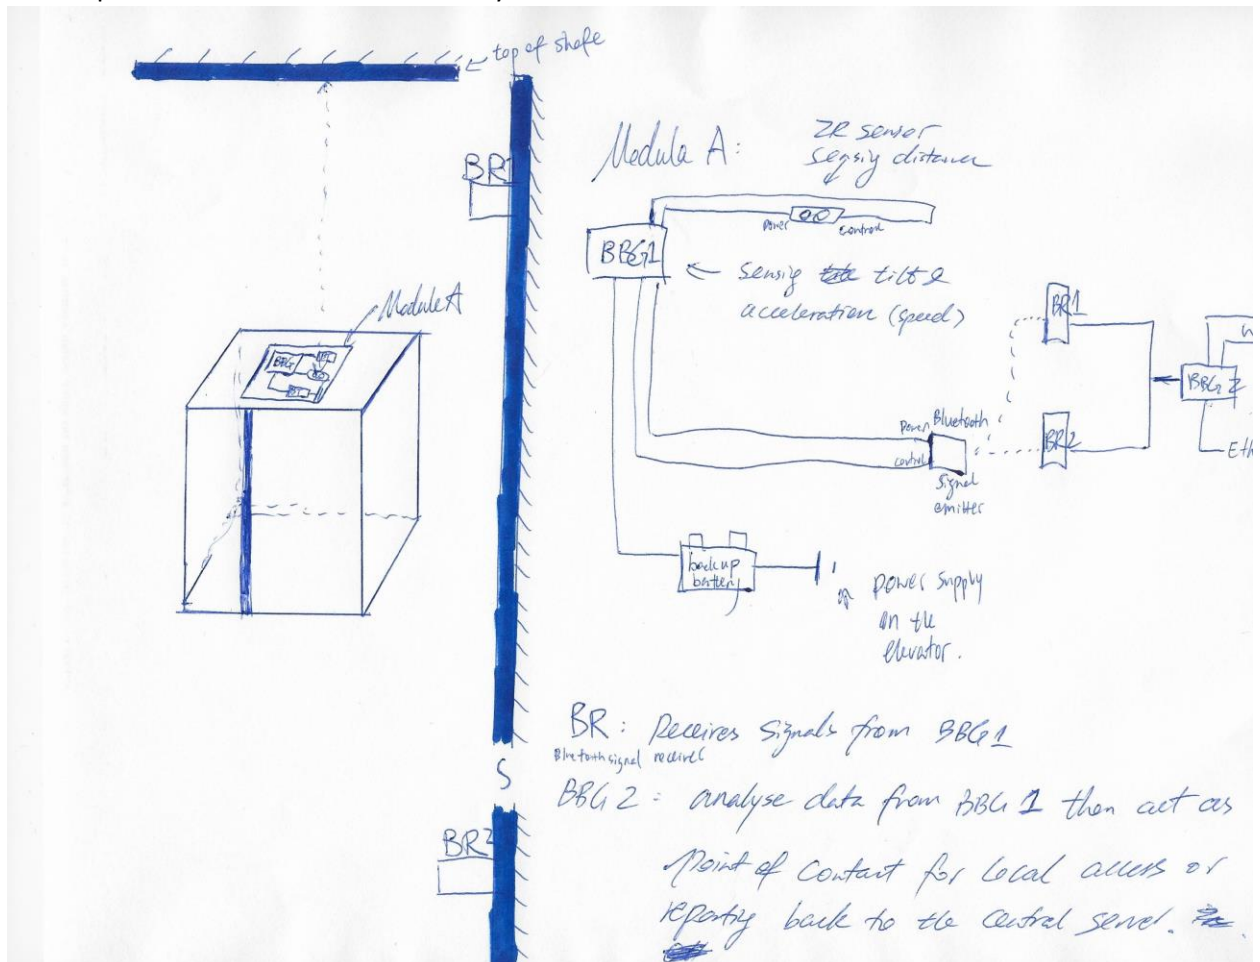 top of shafe
BR1
Module A
BBG
BR2
S
Modula A:
ZR sensor
sensig distance
power
control
BBG1
sensig tilt &
acceleration (speed)
BR1
BBG 2
W
power
Bluetooth
BR2
control
Eth
signal
emitter
back up
battery
power supply
on the
elevator.
BR: Receives signals from BBG1
Bluetooth signal receiver
BBG 2: analyse data from BBG 1 then act as
Point of contact for local access or
reporting back to the central server.